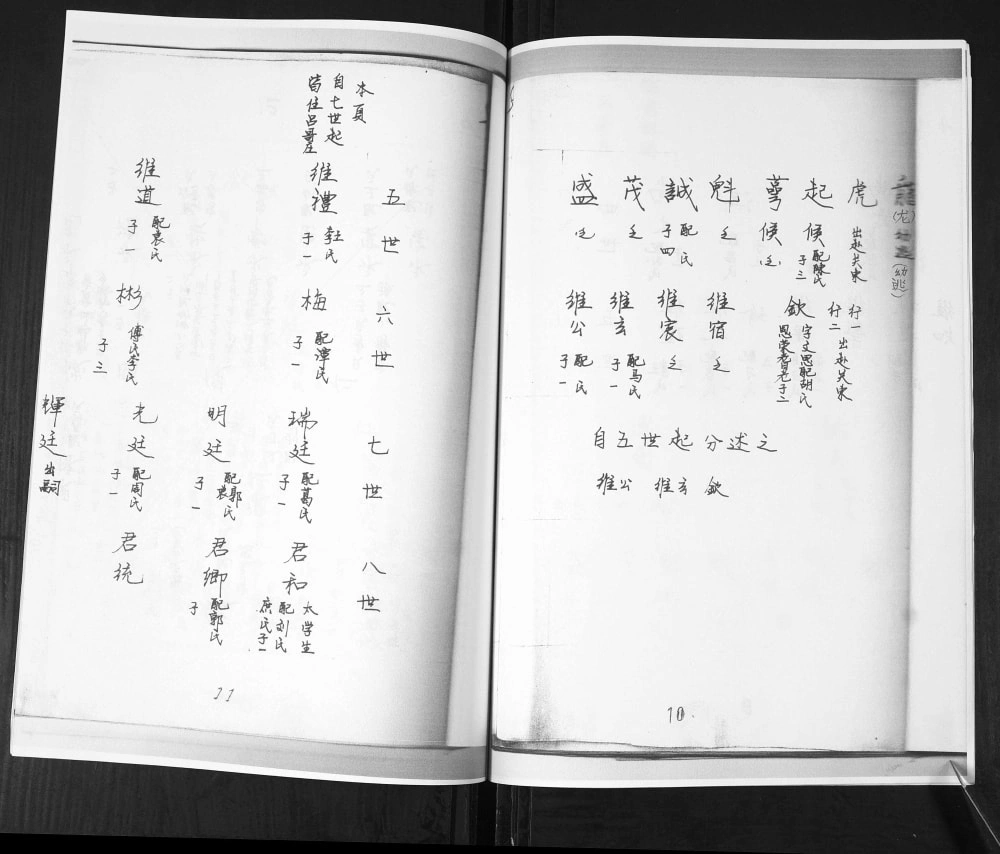 (尤)
(幼逃)
虎 出赴关東
行一
起 行二 出赴关東
候 配陳氏
子三
欽 字文思配胡氏
候 乏
魁 乏
維宿 乏
誠 配 氏
子四
維宸 乏
茂 乏
維玄 配馬氏
子一
盛 乏
維公 配 氏
子一
自五世起分述之
維公 維玄 欽
10.
本頁
自七世起
皆住吕哥庄
五世 六世 七世 八世
維禮 杜氏
子一
梅 配潭氏
子一
瑞廷 配葛氏
子一
君和 太学生
配刘氏
庶氏子一
明廷 配郭氏
袁
子一
君卿 配郭氏
子
維道 配袁氏
子一
彬 傅氏李氏
子三
光廷 配周氏
子一
君统
輝廷 出嗣
11